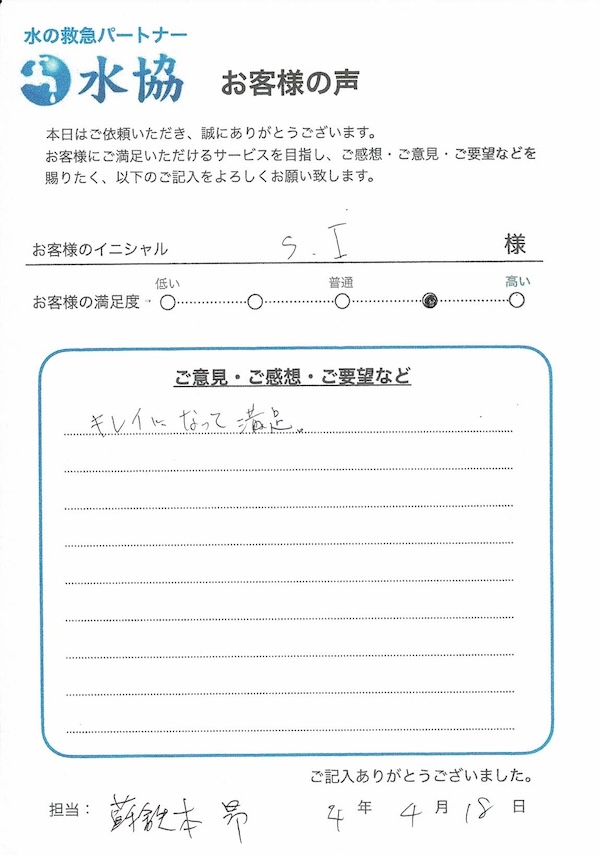 水の救急パートナー
水協 お客様の声
本日はご依頼いただき、誠にありがとうございます。
お客様にご満足いただけるサービスを目指し、ご感想・ご意見・ご要望などを
賜りたく、以下のご記入をよろしくお願い致します。
お客様のイニシャル S.I 様
低い 普通 高い
お客様の満足度
ご意見・ご感想・ご要望など
キレイになって満足。
ご記入ありがとうございました。
担当: 蘇鉄本 昴 4年 4月 18日